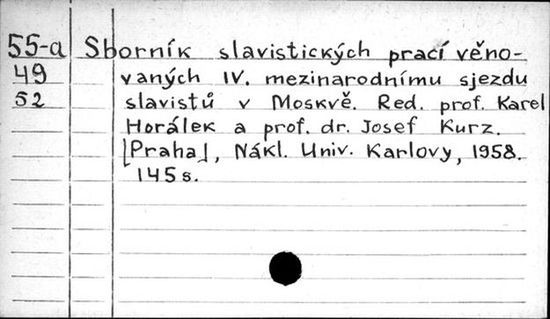 55-a Sborník slavistických prací věno-
49 vaných IV. mezinarodnímu sjezdu
52 slavistů v Moskvě. Red. prof. Karel
Horálek a prof. dr. Josef Kurz.
[Praha], Nákl. Univ. Karlovy, 1958.
145 s.